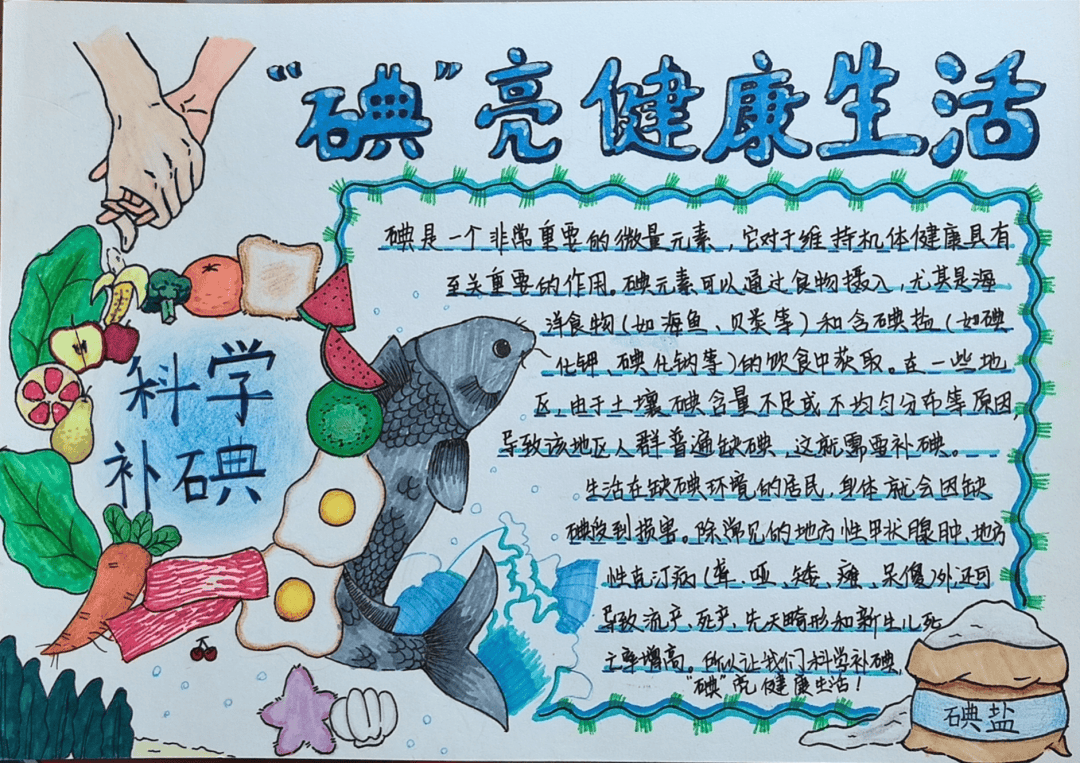 “碘”亮健康生活
科学
补碘
碘是一个非常重要的微量元素，它对于维持机体健康具有
至关重要的作用。碘元素可以通过食物摄入，尤其是海
洋食物（如海鱼、贝类等）和含碘盐（如碘
化钾、碘化钠等）的饮食中获取。在一些地
区，由于土壤碘含量不足或不均匀分布等原因，
导致该地区人群普遍缺碘，这就需要补碘。
生活在缺碘环境的居民，身体就会因缺
碘受到损害。除常见的地方性甲状腺肿、地方
性克汀病（聋、哑、矮、瘫、呆傻）外还可
导致流产、死产、先天畸形和新生儿死
亡率增高。所以让我们科学补碘，
“碘”亮健康生活！
碘盐